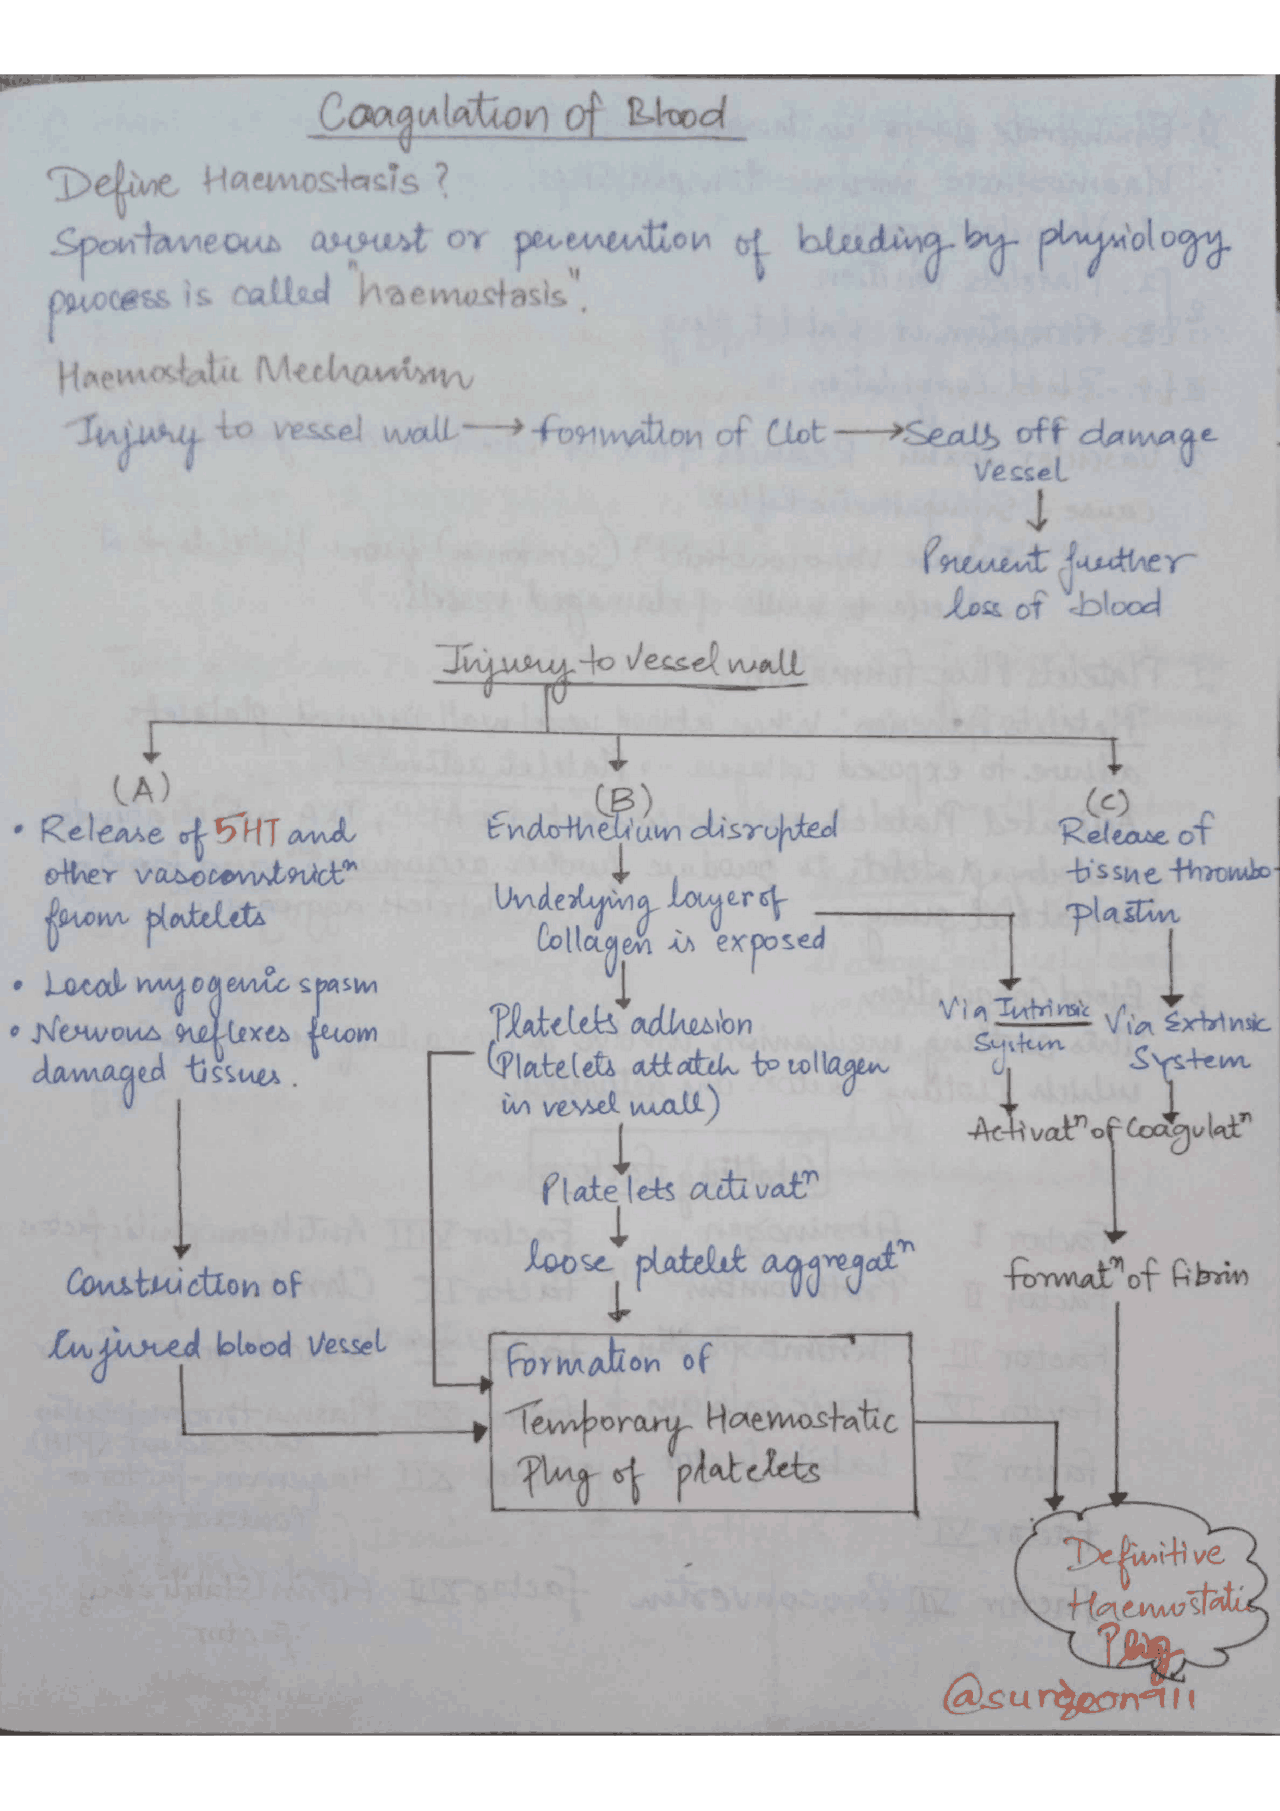 Coagulation of Blood
Define Haemostasis ?
Spontaneous arrest or prevention of bleeding by physiology
process is called "haemostasis".
Haemostatic Mechanism
Injury to vessel wall → formation of Clot → Seals off damage
vessel
↓
Prevent further
loss of blood
Injury to vessel wall
(A)
• Release of 5HT and
other vasoconstrictⁿ
from platelets
• Local myogenic spasm
• Nervous reflexes from
damaged tissues.
Constriction of
Injured blood vessel
(B)
Endothelium disrupted
↓
Underlying layer of
Collagen is exposed
↓
Platelets adhesion
(Platelets attatch to collagen
in vessel wall)
↓
Platelets activatⁿ
↓
loose platelet aggregatⁿ
↓
Formation of
Temporary Haemostatic
Plug of platelets
(C)
Release of
tissue thrombo-
plastin
Via Intrinsic
System
Via Extrinsic
System
Activatⁿ of Coagulatⁿ
formatⁿ of fibrin
Definitive
Haemostatic
Plug
@surgeon911